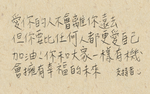 愛你的人不會離你遠去
但你要比任何人都更愛自己
加油!你和大家一樣有機
會擁有幸福的未來